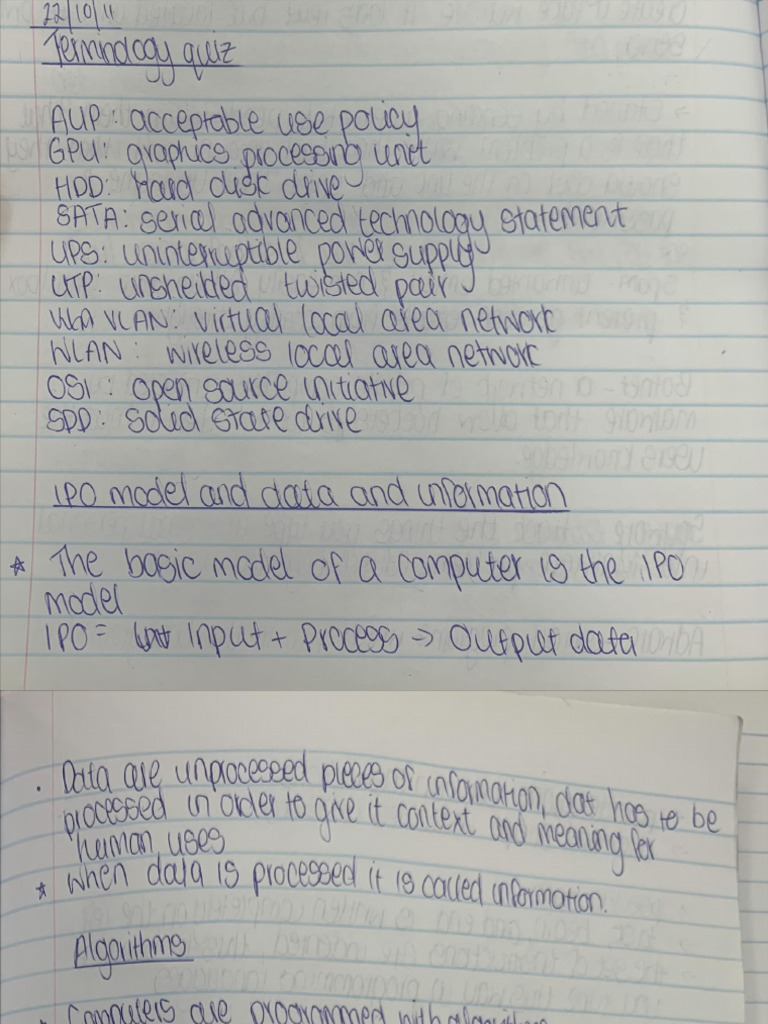 22/10/11
Terminology quiz
AUP: acceptable use policy
GPU: graphics processing unit
HDD: Hard disk drive
SATA: serial advanced technology statement
UPS: uninterruptible power supply
UTP: unsheilded twisted pair
VLAN: virtual local area network
WLAN: wireless local area network
OSI: open source initiative
SDD: solid state drive
IPO model and data and information
* The basic model of a computer is the IPO
model
IPO = Input + Process → Output data
• Data are unprocessed pieces of information, dat has to be
processed in order to give it context and meaning for
human uses
* when data is processed it is called information.
Algorithms
Computers are programmed with algorithms